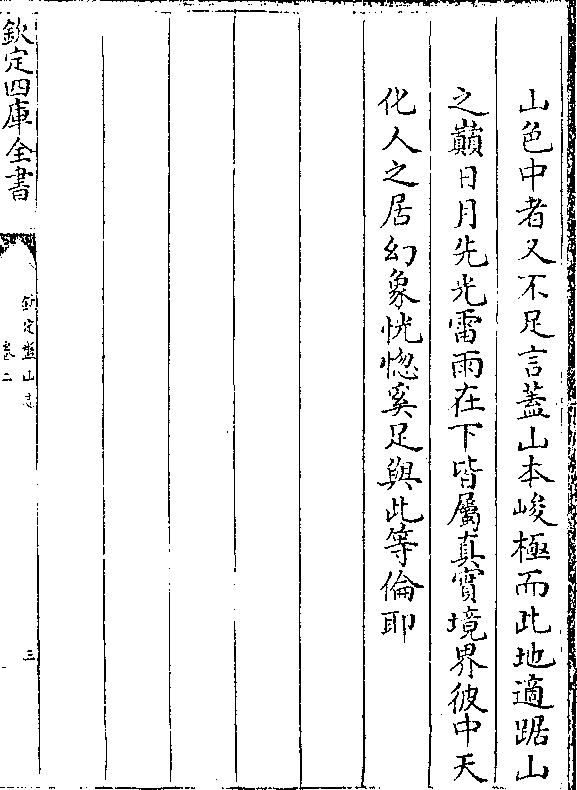 山色中者又不足言蓋山本峻極而此地適踞山
之巔日月先光雷雨在下皆屬真實境界彼中天
化人之居幻象恍惚奚足與此等倫耶
欽定四庫全書
欽定盤山志
卷二
三